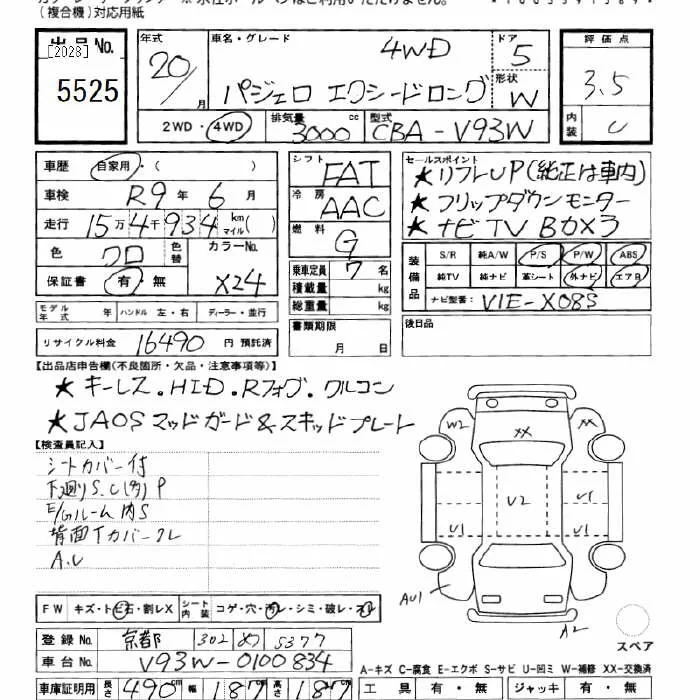 (複合機)対応用紙
出品No.
[2023]
5525
年式
20/月
車名・グレード
4WD
パジェロ エクシードロング
ドア
5
形状
W
評価点
3.5
内装
C
2WD・4WD
排気量
3000 cc
型式
CBA-V93W
車歴 自家用・( )
車検 R9年 6月
走行 15万4千934 km マイル( )
色 クロ
色替
カラーNo.
X24
保証書 有・無
モデル年式
ハンドル 左・右
ディーラー・並行
リサイクル料金 16490 円 預託済
シフト FAT
冷房 AAC
燃料 G
乗車定員 7 名
積載量 kg
総重量 kg
書類期限
月 日
セールスポイント
★リフトUP(純正は車内)
★フリップダウンモニター
★ナビTV BOX3
装備品
S/R 純A/W P/S P/W ABS
純TV 純ナビ 革シート 外ナビ エアB
ナビ型番: VIE-X08S
後日品
【出品店申告欄(不良箇所・欠品・注意事項等)】
★キーレス.HID.Rフォグ.クルコン
★JAOSマッドガード&スキッドプレート
【検査員記入】
シートカバー付
下廻りS.C(多)P
E/Gルーム内S
背面Tカバークレ
A.U
FW キズ・トビ石・割レX
シート内装 コゲ・穴・汚レ・シミ・破レ・スレ
登録No. 京都 302 め 5377
車台No. V93W-0100834
車庫証明用 長さ 490 幅 187 高さ 187
W2
XX
U1
U2
U1
U1
AU1
A2
スペア
A-キズ C-腐食 E-エクボ S-サビ U-凹ミ W-補修 XX-交換済
工具 有・無 ジャッキ 有・無